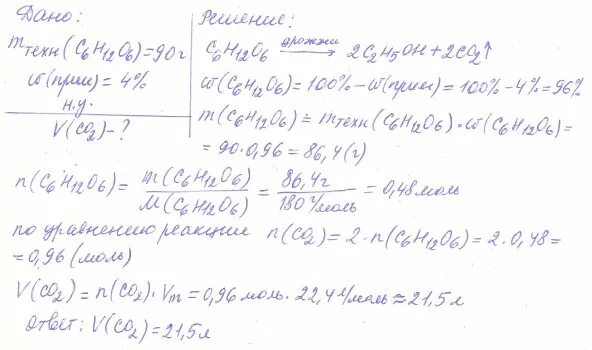 Дано:
m техн (C₆H₁₂O₆) = 90 г
ω(прим) = 4%
н.у.
V(CO₂) - ?
Решение:
C₆H₁₂O₆ дрожжи → 2C₂H₅OH + 2CO₂↑
ω(C₆H₁₂O₆) = 100% - ω(прим) = 100% - 4% = 96%
m(C₆H₁₂O₆) = m техн (C₆H₁₂O₆) · ω(C₆H₁₂O₆) =
= 90 · 0,96 = 86,4 (г)
n(C₆H₁₂O₆) = m(C₆H₁₂O₆) / M(C₆H₁₂O₆) = 86,4 г / 180 г/моль = 0,48 моль
по уравнению реакции n(CO₂) = 2 · n(C₆H₁₂O₆) = 2 · 0,48 =
= 0,96 (моль)
V(CO₂) = n(CO₂) · Vm = 0,96 моль · 22,4 л/моль ≈ 21,5 л
Ответ: V(CO₂) = 21,5 л